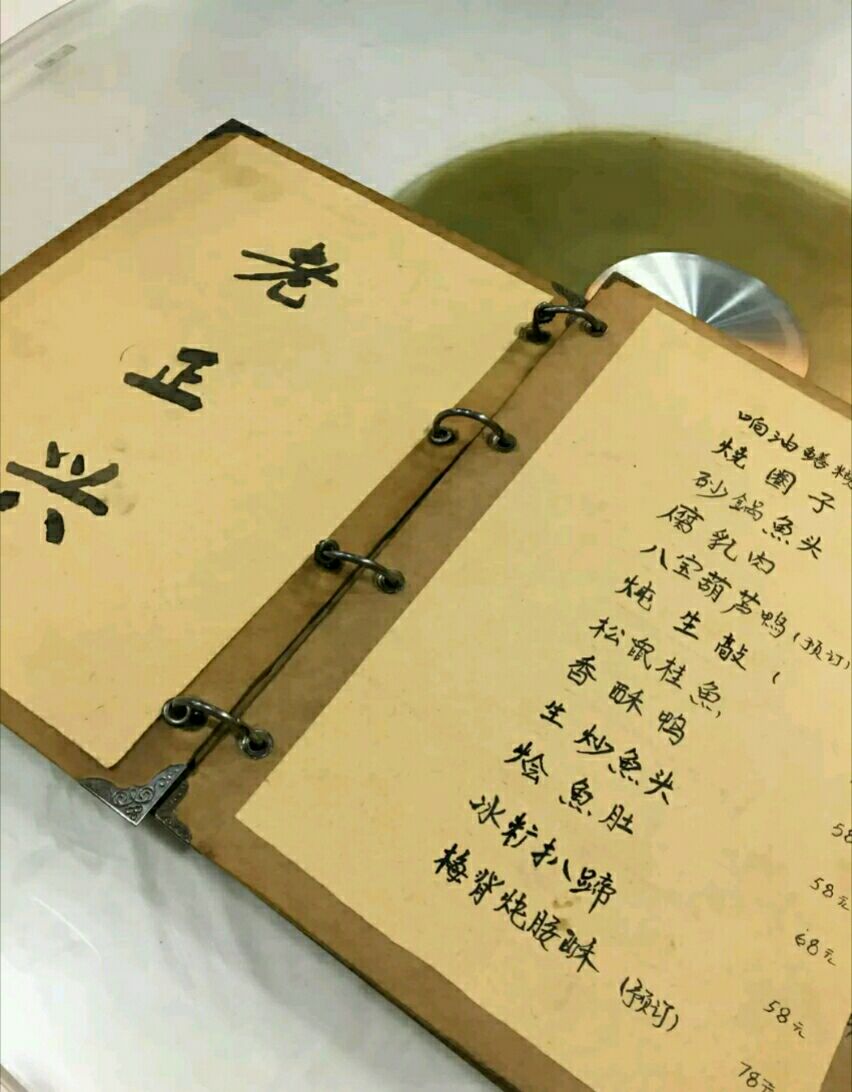 老正头
响油鳝糊
烧圈子
砂锅魚头
腐乳肉
八宝葫芦鸭(预订)
炖生敲(
松鼠桂魚
香酥鸭
生炒魚头
烩魚肚
冰籽扒蹄
梅脊炖腰酥(预订)
58
58元
68元
58元
78元